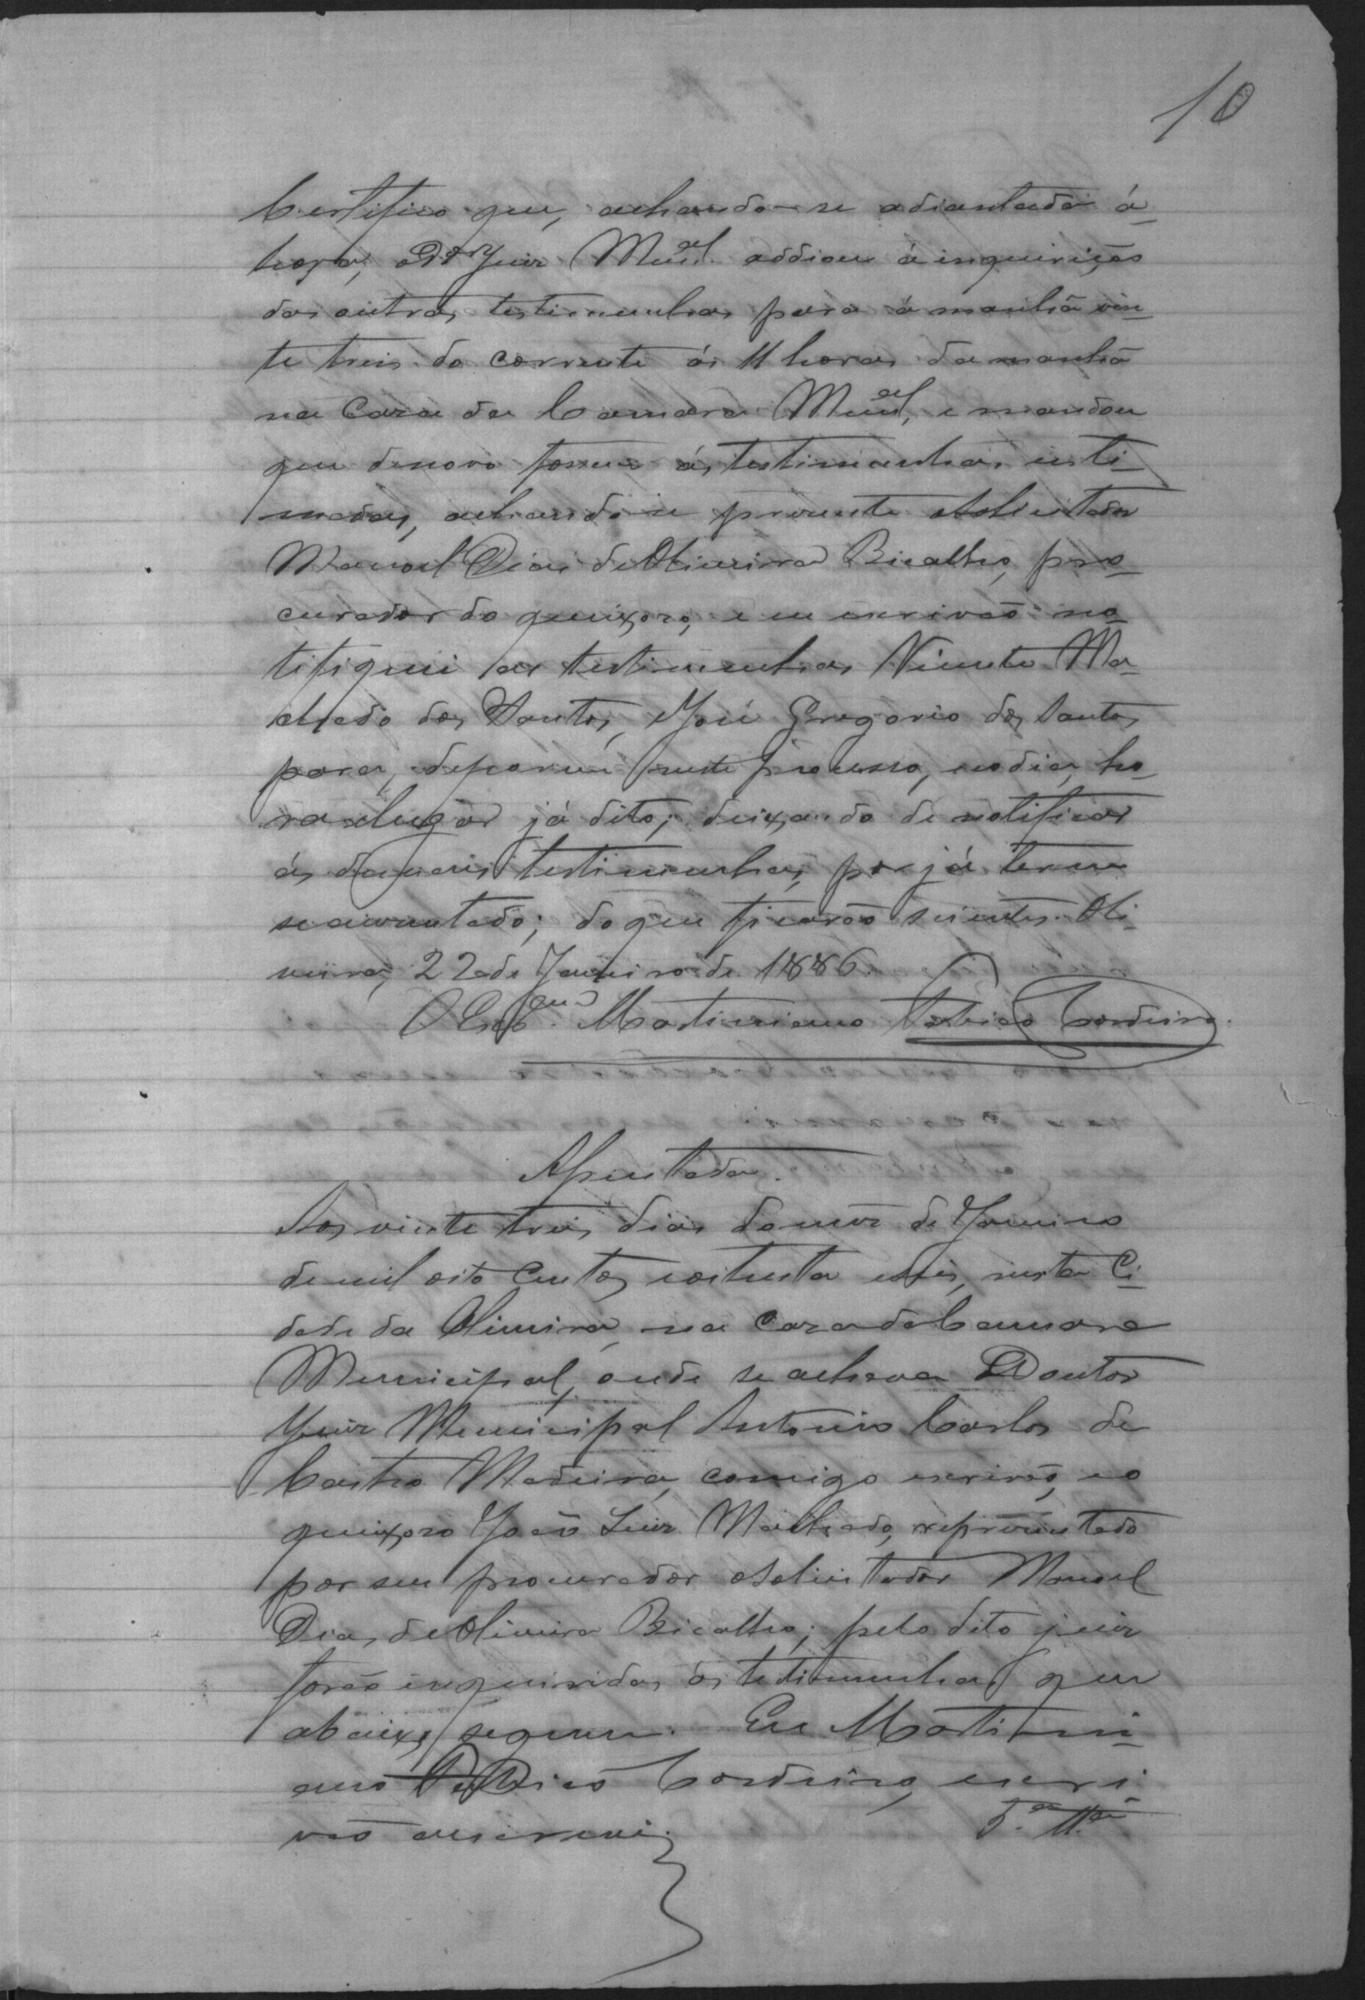 10
Certifico que, achando-se adiantada á
hora, o Dr Juiz Munal. addiou á inquirição
das outras testimunhas para á manhã vin-
te treis do corrente ás 11 horas da manhã
na Caza da Camara Munal, e mandou
que denovo fossem ás testimunhas inti-
madas, achando-se presente oSolicitador
Manoel Dias deOliveira Bicalho, pro-
curador do queixozo, e eu escrivão no-
tifiquei as testimunhas Vicente Ma-
chado dos Santos, José Gregorio dos Santos
para deporem neste processo, nodia, ho-
ra elugar já dito; deixando de notificar
ás demais testimunhas, por já terem
seauzentado; do que ficarão scientes. Oli-
veira, 22 de Janeiro de 1886.
O Escram. Martiniano Cordeiro.
Assentada.
Aos vinte treis dias do mez de Janeiro
de mil oito Centos eoitenta eseis, nesta Ci-
dade da Oliveira, na Caza da Camara
Municipal, onde se achava o Doutor
Juiz Municipal Antonio Carlos de
Castro Madeira, comigo escrivão, e o
queixozo João Luiz Machado, reprezentado
por seu procurador oSolicitador Manoel
Dias deOliveira Bicalho; pelo dito juiz
forão inqueridas ás testimunhas que
abaixo seguem. Eu Martini-
ano Cordeiro, escri-
vão oescrevi.
5.a Ta